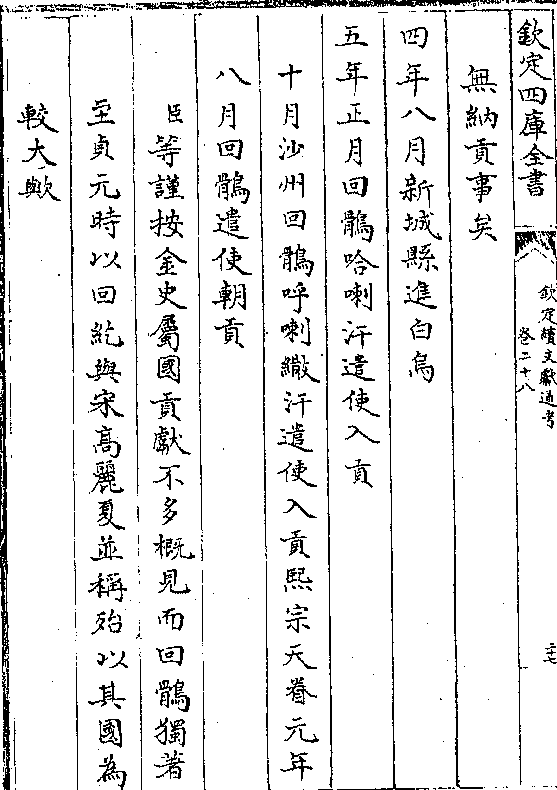 欽定四庫全書
欽定續文獻通考
卷二十八
二十七
無納貢事矣
四年八月新城縣進白烏
五年正月回鶻哈喇汗遣使入貢
十月沙州回鶻呼喇繖汗遣使入貢熙宗天眷元年
八月回鶻遣使朝貢
臣等謹按金史屬國貢獻不多概見而回鶻獨著
至貞元時以回紇與宋高麗夏並稱殆以其國為
較大歟